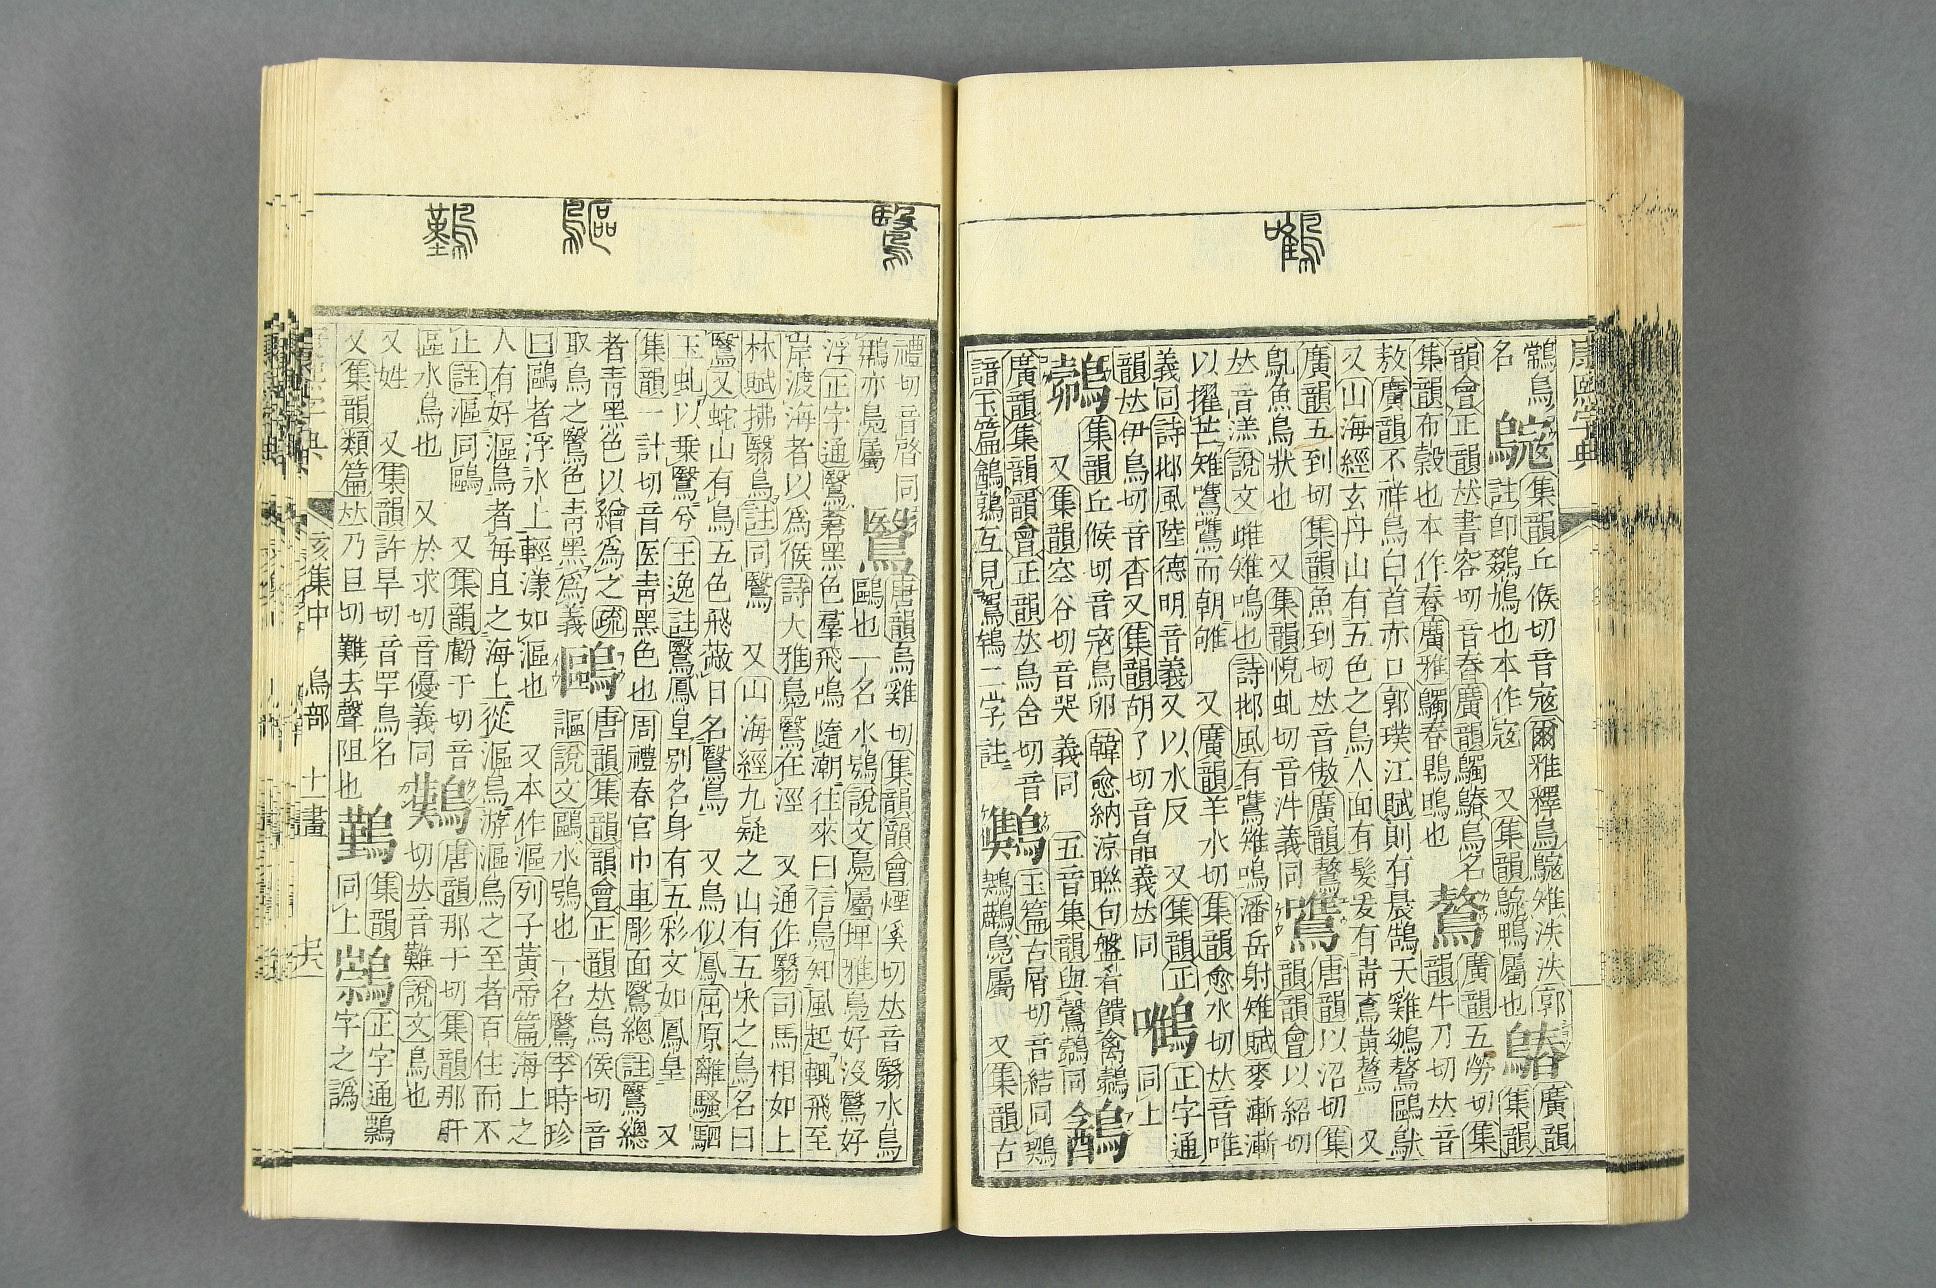 康熙字典
集韻丘候切音寇爾雅釋鳥雉泆泆郭 廣韻
名 註卽鵽鳩也本作寇 又集韻鴨屬也 集韻
韻會正韻𠀤書容切音舂廣韻鸀鶞鳥名 廣韻五勞切集
集韻布穀也本作舂廣雅鸀舂也 鷔 韻牛刀切𠀤音
敖廣韻不祥鳥白首赤口郭璞江賦則有晨鵠天雞鴢鷔鷗
又山海經玄丹山有五色之鳥人面有髮爰有靑鴍黃鷔 又
廣韻五到切集韻魚到切𠀤音傲廣韻鷔 唐韻以沼切集
鳧魚鳥狀也 又集韻悅虬切音義同 鷕 韻韻會以紹切
𠀤音溔說文雌雉鳴也詩邶風有鷕雉鳴潘岳射雉賦麥漸漸
以擢芒雉鷕鷕而朝雊 又廣韻羊水切集韻愈水切𠀤音唯
義同詩邶風陸德明音義又以水反 又集韻正 正字通
韻𠀤伊鳥切音杳又集韻胡了切音皛義𠀤同 同上
集韻丘候切音寇鳥卵韓愈納涼聯句盤肴饋禽
又集韻空谷切音哭 義同 五音集韻與同
廣韻集韻韻會正韻𠀤烏含切音 玉篇古屑切音結同
諳玉篇鵪鶉互見鴽二字註 鳧屬 又集韻古
禮切音啓同 唐韻烏雞切集韻韻會煙奚切𠀤音翳水鳥
亦鳧屬 鷖 鷗也一名水鴞說文鳧屬埤雅鳧好沒鷖好
浮正字通鷖蒼黑色羣飛鳴隨潮往來曰信鳧知風起輒飛至
岸渡海者以爲候詩大雅鳧鷖在涇 又通作翳司馬相如上
林賦拂翳鳥註同鷖 又山海經九疑之山有五采之鳥名曰
鷖又蛇山有鳥五色飛蔽日名鷖鳥 又鳥似鳳屈原離騷駟
玉虬以乗鷖兮王逸註鷖鳳皇別名身有五彩文如鳳皇 又
集韻一計切音医靑黑色也周禮春官巾車彫面鷖總註鷖總
者靑黑色以繒爲之疏 唐韻集韻韻會正韻𠀤烏侯切音
取鳥之鷖色靑黑爲義 鷗 謳說文鷗水鴞也一名鷖李時珍
曰鷗者浮水上輕漾如漚也 又本作漚列子黃帝篇海上之
人有好漚鳥者每旦之海上從漚鳥游漚鳥之至者百住而不
止註漚同鷗 又集韻虧于切音 唐韻那干切集韻那肝
漚水鳥也 又於求切音優義同 鷬 切𠀤音難說文鳥也
又姓 又集韻許旱切音罕鳥名 集韻 正字通
又集韻類篇𠀤乃旦切難去聲阻也 同上 字之譌
亥集中 鳥部 十一畫